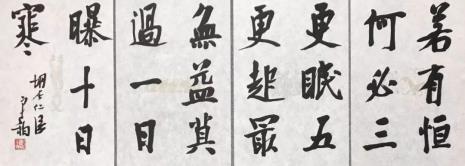 若有恒
何必三
更眠五
更起最
無益莫
過一日
曝十日
寒